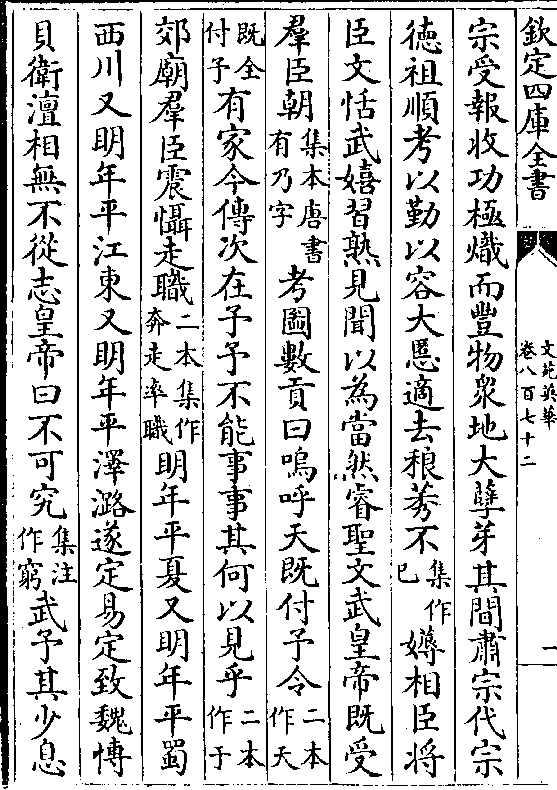 欽定四庫全書
文苑英華
卷八百七十二
一
宗受報收功極熾而豐物衆地大孽芽其間肅宗代宗
徳祖順考以勤以容大慝適去稂莠不集作已薅相臣將
臣文恬武嬉習熟見聞以為當然睿聖文武皇帝既受
羣臣朝集本唐書有乃字考圖數貢曰嗚呼天既付予令二本作天
既全付予有家今傳次在予予不能事事其何以見乎二本作于
郊廟羣臣震懾走職二本集作奔走率職明年平夏又明年平蜀
西川又明年平江東又明年平澤潞遂定易定致魏博
貝衛澶相無不從志皇帝曰不可究集注作窮武予其少息